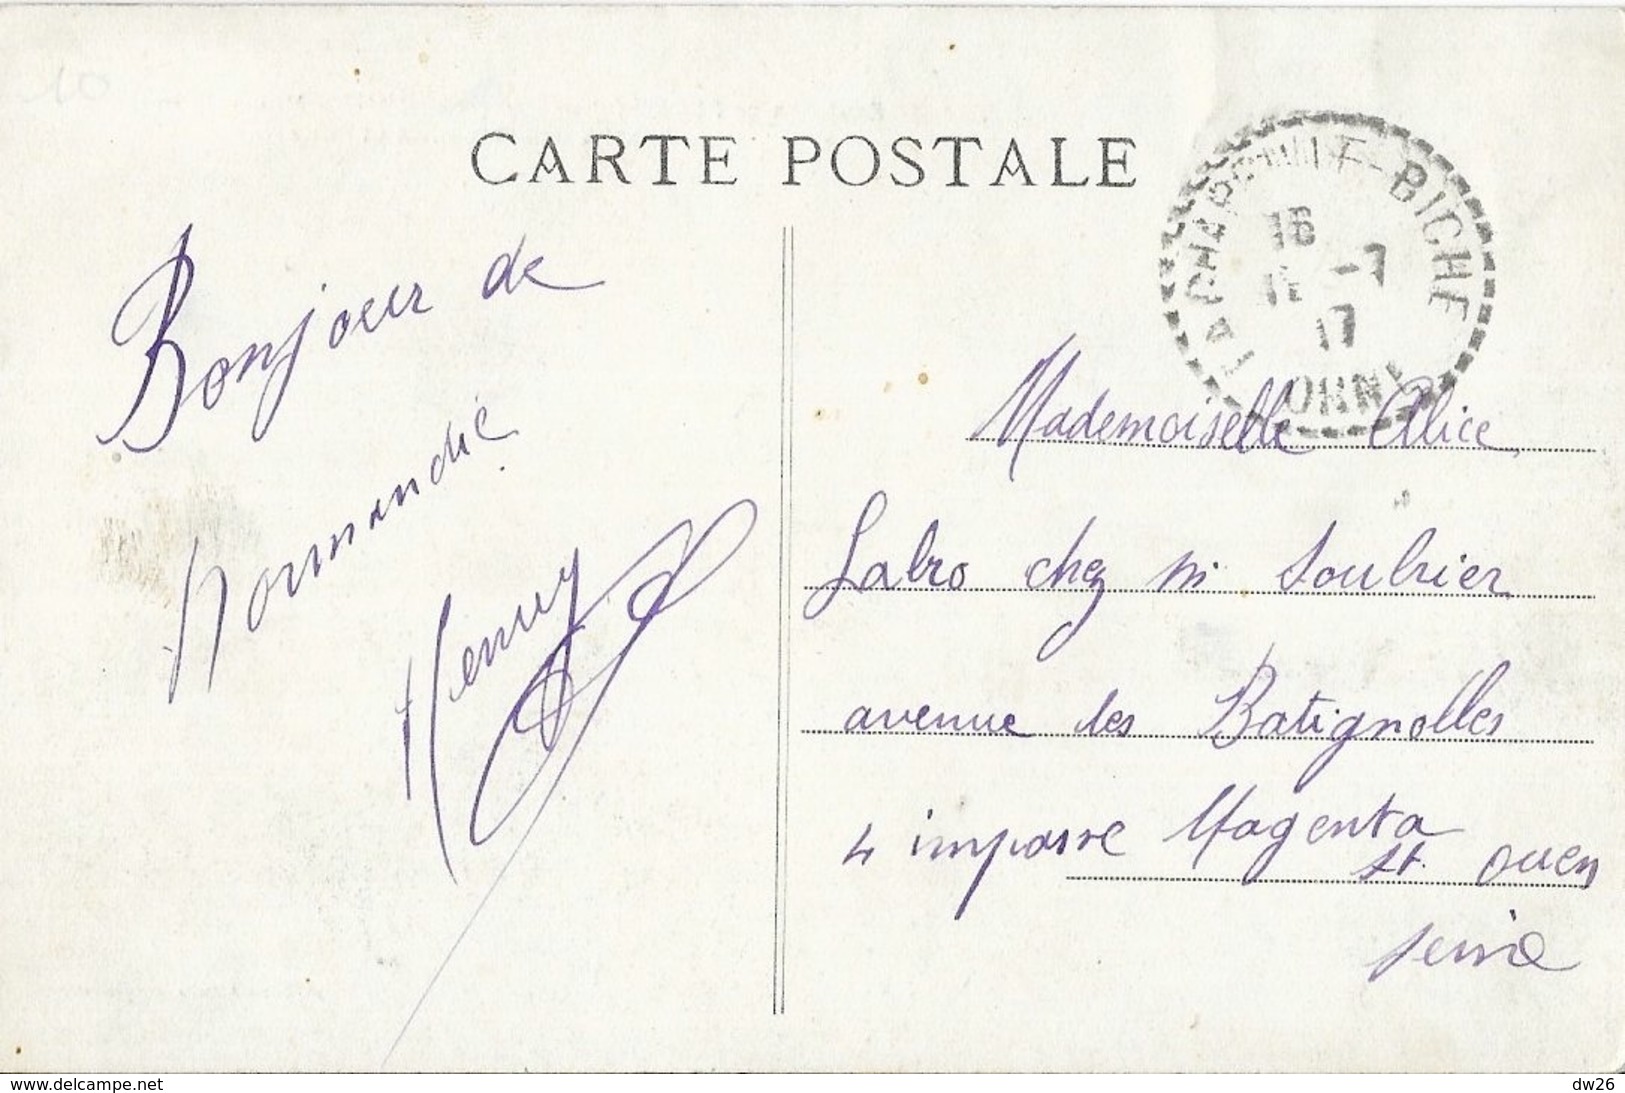 CARTE POSTALE
LA CHAPELLE-BICHE
16
-7
17
ORNE
Bonjour de
Normandie
Henry
Mademoiselle Alice
Labro chez M Soubrier
avenue des Batignolles
4 impasse Magenta
St. Ouen
Seine
www.delcampe.net
dw26